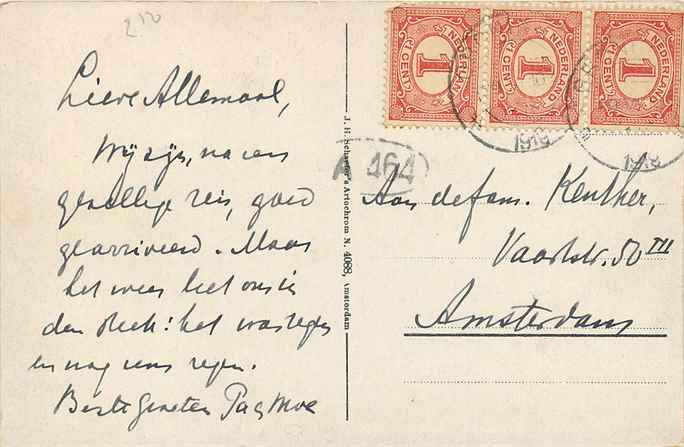 2 50
Lieve Allemaal,
Wij zijn, na een
gezellige reis, goed
gearriveerd. Maar
het weer liet ons in
den steek: het was regen
en nog eens regen.
Beste Groeten Pa en Moe
J. H. Schaefer's Artochrom N. 4068, Amsterdam
A 464
NEDERLAND
1
1 CENT
NEDERLAND
1
1 CENT
NEDERLAND
1
1 CENT
Aan de fam. Kenther,
Vaartstr. 50 III
Amsterdam